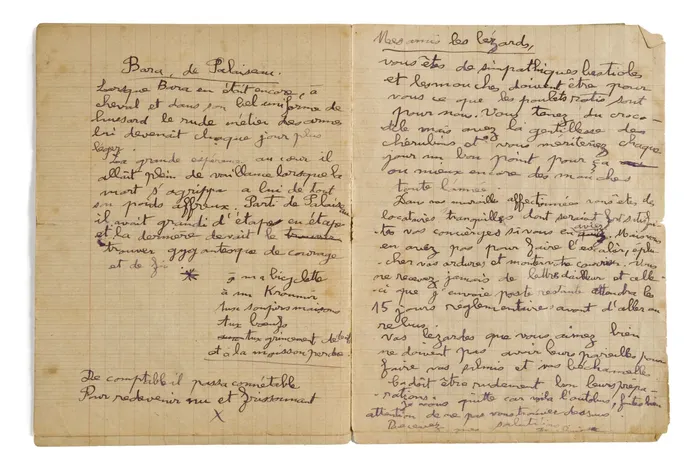 Bara, de Palaiseau.
Lorsque Bara en était encore, à
cheval et dans son bel uniforme de
hussard le rude métier des armes
lui devenait chaque jour plus
léger.
La grande espérance au cœur il
allait plein de vaillance lorsque la
mort s'agrippa a lui de tout
son poids affreux. Parti de Palaiseau
il avait grandi d'étape en étape
et la dernière devait le
trouver gigantesque de courage
et de
à ma bicyclette
à mu Kroumir
aux toujours maisons
aux bœufs
aux grincement de
et a la moisson perdue
De comptible il passa connétable
Pour redevenir nu et frissonnant
X
Mes amis les lézards,
vous êtes de simpathiques bestioles
et les mouches doivent être pour
vous ce que les poulets rotis sont
pour nous. Vous tenez du croco-
dile mais avez la gentillesse des
chérubins et vous méritez chaque
jour un bon point pour ça
ou mieux encore des mouches
toute
Dans vos murailles affectionnées vous êtes des
locataires tranquilles dont seraient
vos concierges si vous en aviez. Mais vous
en avez pas pour faire l'escalier, éplu-
cher vos ordures et monter vos courrier. Vous
ne recevez jamais de lettre d'ailleurs et celle
-ci que j'envoie poste restante attendra les
15 jours réglementaires avant d'aller au
rebus.
Vos lézardes que vous aimez bien
ne doivent pas avoir leurs pareilles pour
faire vos salmis et vos béchamelles
ce doit être rudement bon leurs prépa
-rations.
Je vous quitte car voila l'autobus, faites bien
attention de ne pas vous trainer dessous
Recevez mes salutations